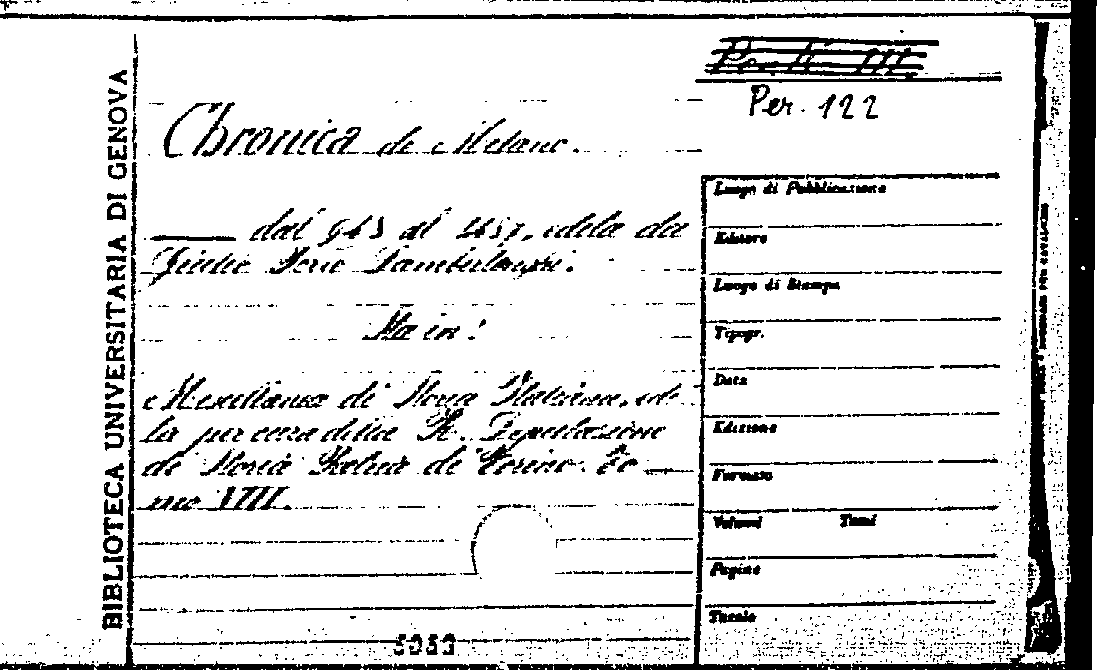 BIBLIOTECA UNIVERSITARIA DI GENOVA
Per. 122
Chronica de Melano.
dal 948 al 1487, edita da
Giulio Porro Lambertenghi.
Sta in:
Miscellanea di Storia Italiana, edi-
ta per cura della R. Deputazione
di Storia Patria di Torino. To-
mo VIII.
Luogo di Pubblicazione
Editore
Luogo di Stampa
Tipogr.
Data
Edizione
Formato
Volumi Tomi
Pagine
Tavole